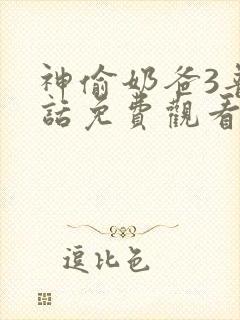 神偷奶爸3普
話免費觀看
逗比色